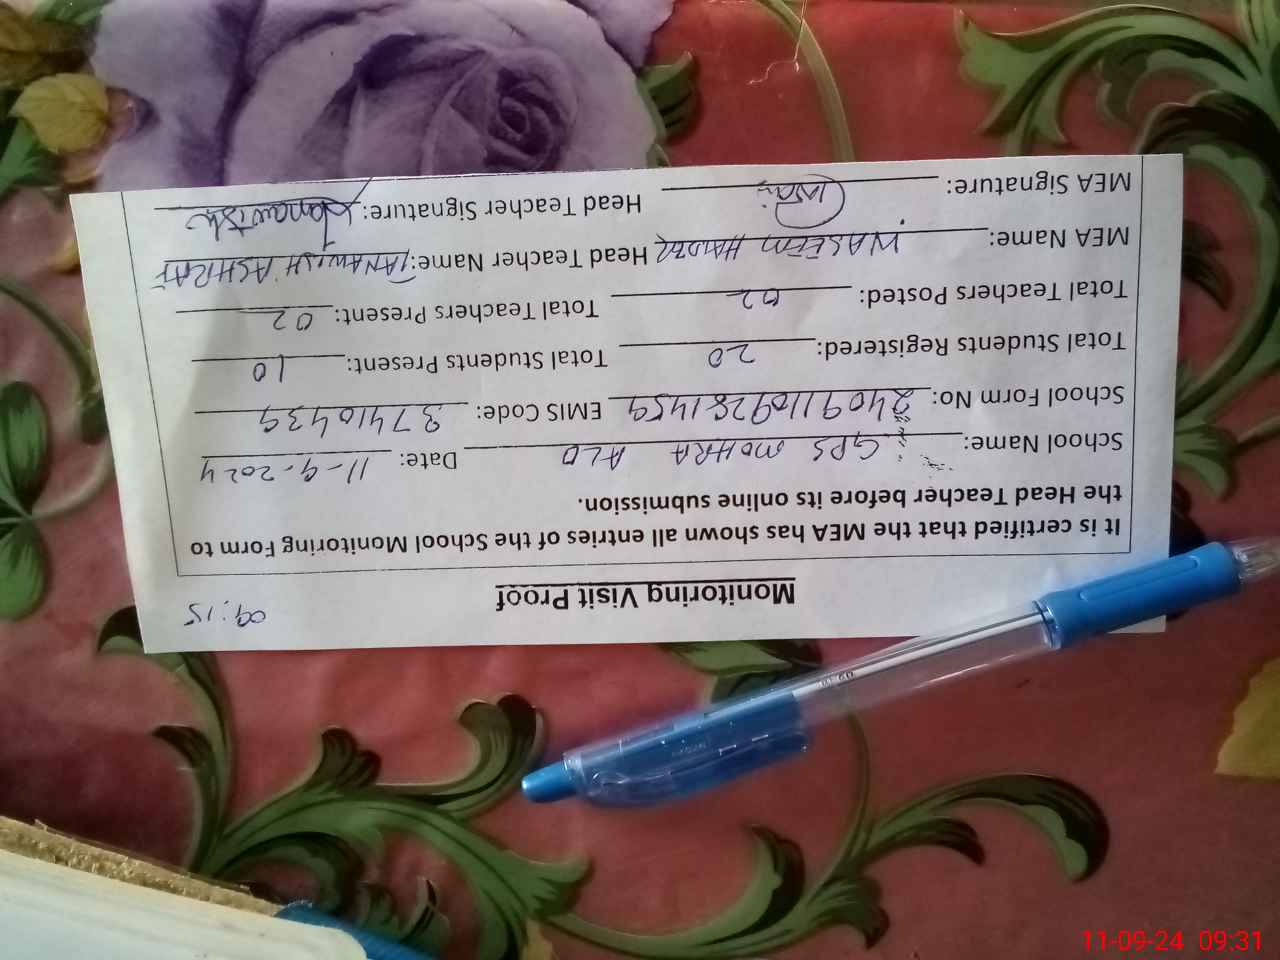 Monitoring Visit Proof 09:15
It is certified that the MEA has shown all entries of the School Monitoring Form to
the Head Teacher before its online submission.
School Name: GPS MOHRA ALO Date: 11-9-2024
School Form No: EMIS Code: 37410439
Total Students Registered: 20 Total Students Present: 10
Total Teachers Posted: 02 Total Teachers Present: 02
MEA Name: WASEEM HAIDER Head Teacher Name: TANAWISH ASHRAF
MEA Signature: Head Teacher Signature: Tanawish
11-09-24 09:31